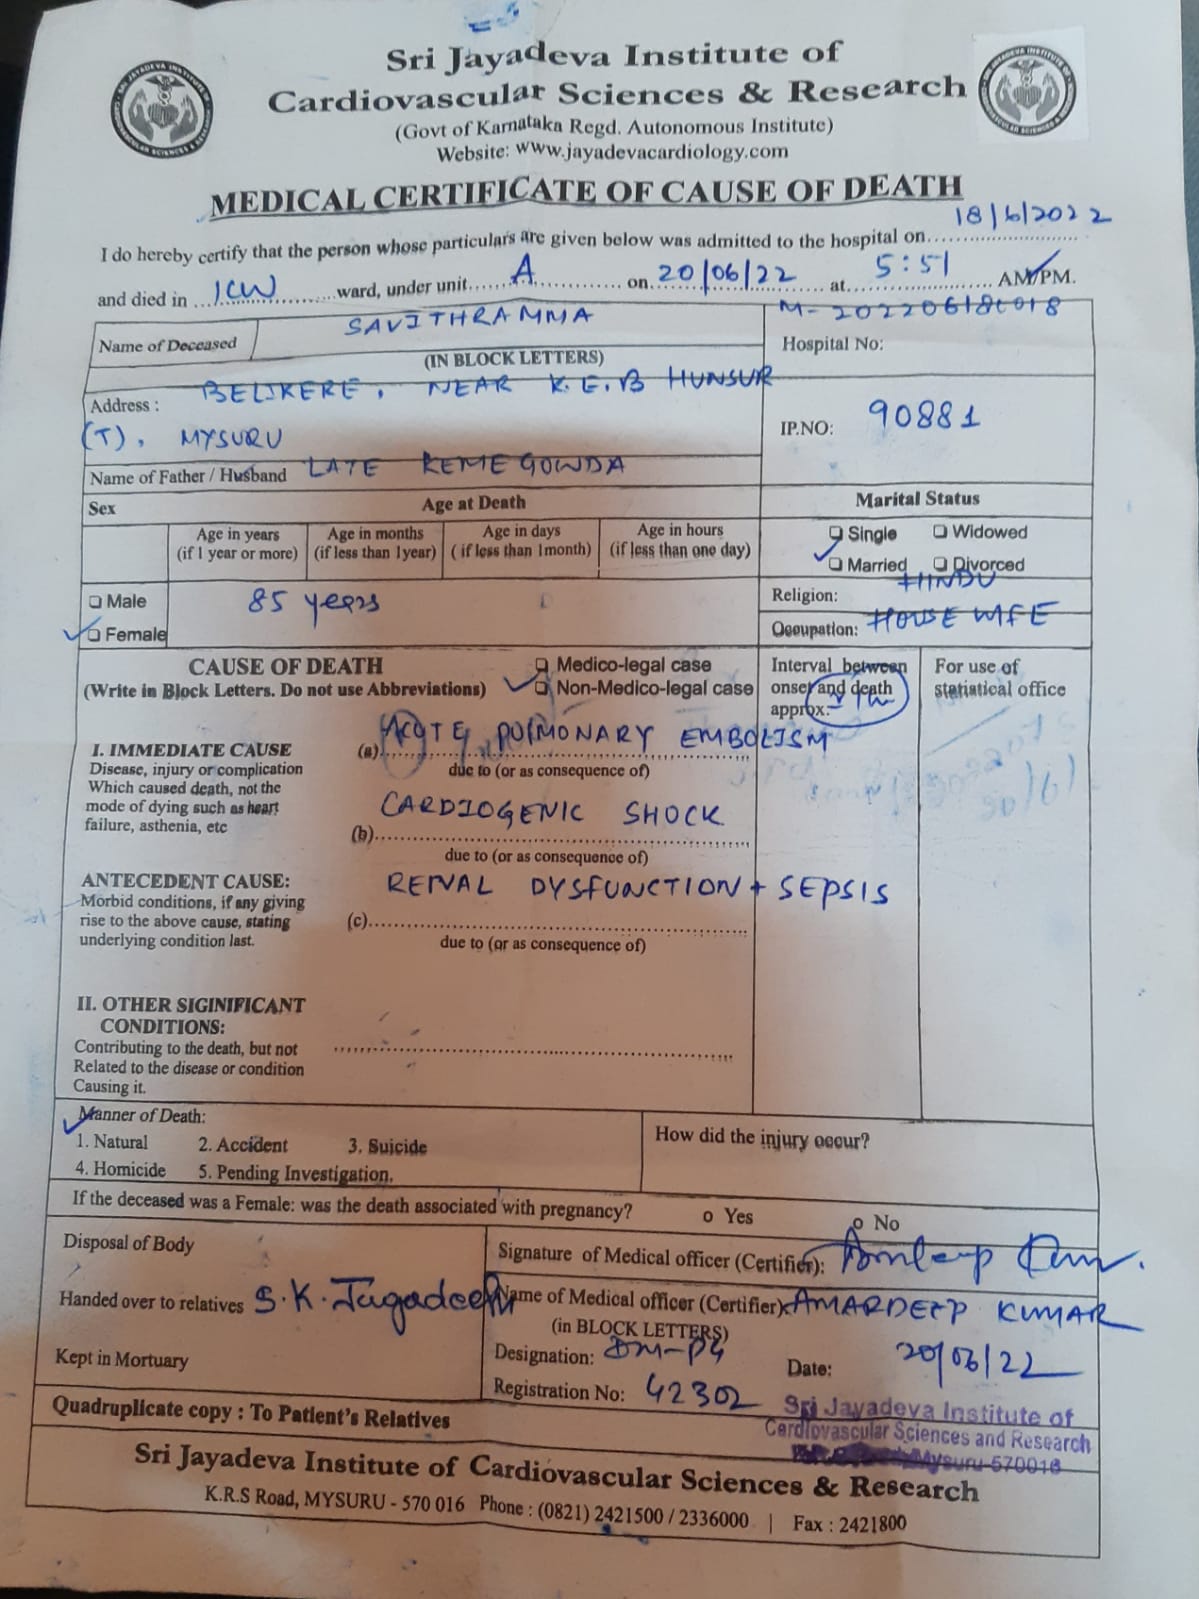 Sri Jayadeva Institute of
Cardiovascular Sciences & Research
(Govt of Karnataka Regd. Autonomous Institute)
Website: www.jayadevacardiology.com
MEDICAL CERTIFICATE OF CAUSE OF DEATH
I do hereby certify that the person whose particulars are given below was admitted to the hospital on 18/6/2022
and died in ICW ward, under unit A on 20/06/22 at 5:51 AM/PM.
Name of Deceased SAVITHRAMMA
(IN BLOCK LETTERS)
Hospital No:
Address : BELIKERE, NEAR K.E.B HUNSUR
(T), MYSURU
IP.NO: 90881
Name of Father / Husband LATE KEMEGOWDA
Sex Age at Death Marital Status
Age in years (if 1 year or more)
Age in months (if less than 1year)
Age in days ( if less than 1month)
Age in hours (if less than one day)
Single Widowed
Married Divorced
Male 85 years
Female
Religion: HINDU
Occupation: HOUSE WIFE
CAUSE OF DEATH
(Write in Block Letters. Do not use Abbreviations)
Medico-legal case
Non-Medico-legal case
Interval between
onset and death
approx:
For use of
statistical office
I. IMMEDIATE CAUSE
Disease, injury or complication
Which caused death, not the
mode of dying such as heart
failure, asthenia, etc
(a) ACUTE PULMONARY EMBOLISM
due to (or as consequence of)
CARDIOGENIC SHOCK
(b)
due to (or as consequence of)
ANTECEDENT CAUSE:
Morbid conditions, if any giving
rise to the above cause, stating
underlying condition last.
RENAL DYSFUNCTION + SEPSIS
(c)
due to (or as consequence of)
II. OTHER SIGINIFICANT
CONDITIONS:
Contributing to the death, but not
Related to the disease or condition
Causing it.
Manner of Death:
1. Natural 2. Accident 3. Suicide
4. Homicide 5. Pending Investigation.
How did the injury occur?
If the deceased was a Female: was the death associated with pregnancy? o Yes o No
Disposal of Body
Handed over to relatives S.K. Jagadeesh
Kept in Mortuary
Signature of Medical officer (Certifier):
Name of Medical officer (Certifier): AMARDEEP KUMAR
(in BLOCK LETTERS)
Designation: DM-PG
Date: 20/06/22
Registration No: 42302
Sri Jayadeva Institute of
Cardiovascular Sciences and Research
Mysuru-570016
Quadruplicate copy : To Patient's Relatives
Sri Jayadeva Institute of Cardiovascular Sciences & Research
K.R.S Road, MYSURU - 570 016 Phone : (0821) 2421500 / 2336000 | Fax : 2421800